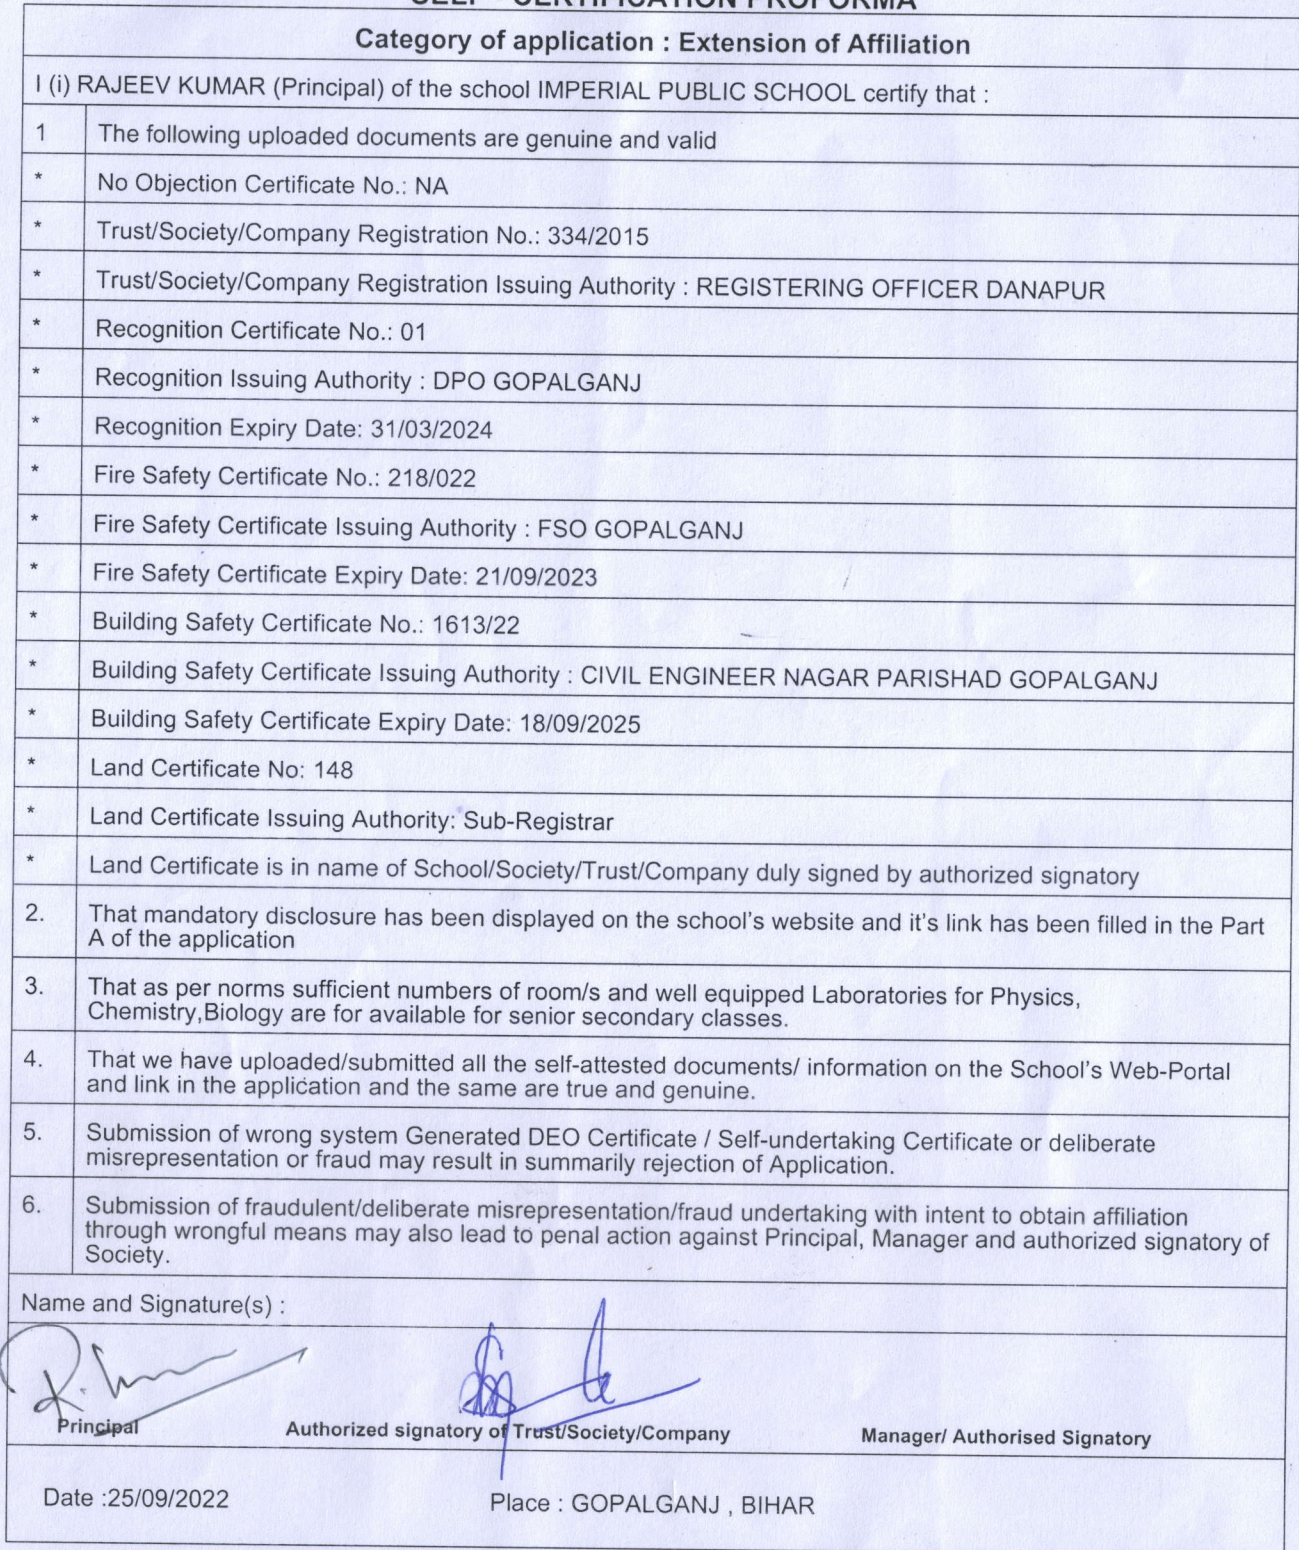 SELF - CERTIFICATION PROFORMA
Category of application : Extension of Affiliation
I (i) RAJEEV KUMAR (Principal) of the school IMPERIAL PUBLIC SCHOOL certify that :
1 The following uploaded documents are genuine and valid
* No Objection Certificate No.: NA
* Trust/Society/Company Registration No.: 334/2015
* Trust/Society/Company Registration Issuing Authority : REGISTERING OFFICER DANAPUR
* Recognition Certificate No.: 01
* Recognition Issuing Authority : DPO GOPALGANJ
* Recognition Expiry Date: 31/03/2024
* Fire Safety Certificate No.: 218/022
* Fire Safety Certificate Issuing Authority : FSO GOPALGANJ
* Fire Safety Certificate Expiry Date: 21/09/2023
* Building Safety Certificate No.: 1613/22
* Building Safety Certificate Issuing Authority : CIVIL ENGINEER NAGAR PARISHAD GOPALGANJ
* Building Safety Certificate Expiry Date: 18/09/2025
* Land Certificate No: 148
* Land Certificate Issuing Authority: Sub-Registrar
* Land Certificate is in name of School/Society/Trust/Company duly signed by authorized signatory
2. That mandatory disclosure has been displayed on the school's website and it's link has been filled in the Part
A of the application
3. That as per norms sufficient numbers of room/s and well equipped Laboratories for Physics,
Chemistry,Biology are for available for senior secondary classes.
4. That we have uploaded/submitted all the self-attested documents/ information on the School's Web-Portal
and link in the application and the same are true and genuine.
5. Submission of wrong system Generated DEO Certificate / Self-undertaking Certificate or deliberate
misrepresentation or fraud may result in summarily rejection of Application.
6. Submission of fraudulent/deliberate misrepresentation/fraud undertaking with intent to obtain affiliation
through wrongful means may also lead to penal action against Principal, Manager and authorized signatory of
Society.
Name and Signature(s) :
Principal Authorized signatory of Trust/Society/Company Manager/ Authorised Signatory
Date :25/09/2022 Place : GOPALGANJ , BIHAR